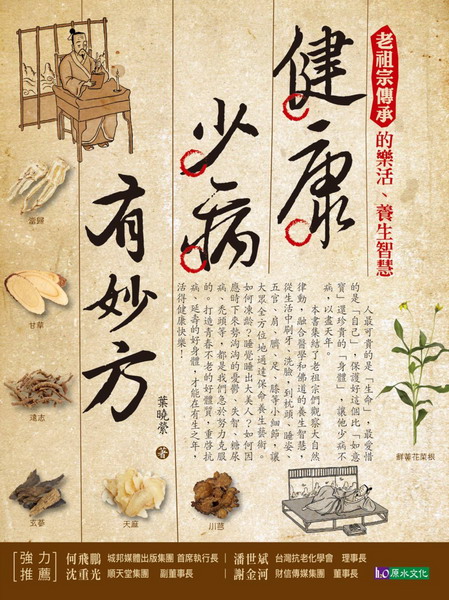 老祖宗傳承的樂活、養生智慧
健康
少病
有妙方
葉曉縈 著
人最可貴的是「生命」，最愛惜
的是「自己」，保護好這個比「如意
寶」還珍貴的「身體」，讓他少病不
病，以盡天年。
本書集結了老祖宗們觀察大自然
律動，融合醫學和佛道的養生智慧，
從生活中刷牙、洗臉，到枕頭、睡姿、
五官、肩、臍、足、膝等小細節，讓
大眾全方位地通達保命養生藝術。
如何凍齡？睡覺睡出大美人？如何因
應時下來勢洶洶的憂鬱、失智、糖尿
病、禿頭等，都是我們急於努力克服
的。打造青春不老的好體質，重啓抗
病、延壽的好身體，才能在有生之年，
活得健康快樂！
當歸
甘草
遠志
玄蔘
天麻
川芎
鮮黃花菜根
強力推薦
何飛鵬 城邦媒體出版集團 首席執行長
沈重光 順天堂集團 副董事長
潘世斌 台灣抗老化學會 理事長
謝金河 財信傳媒集團 董事長
H2O 原水文化